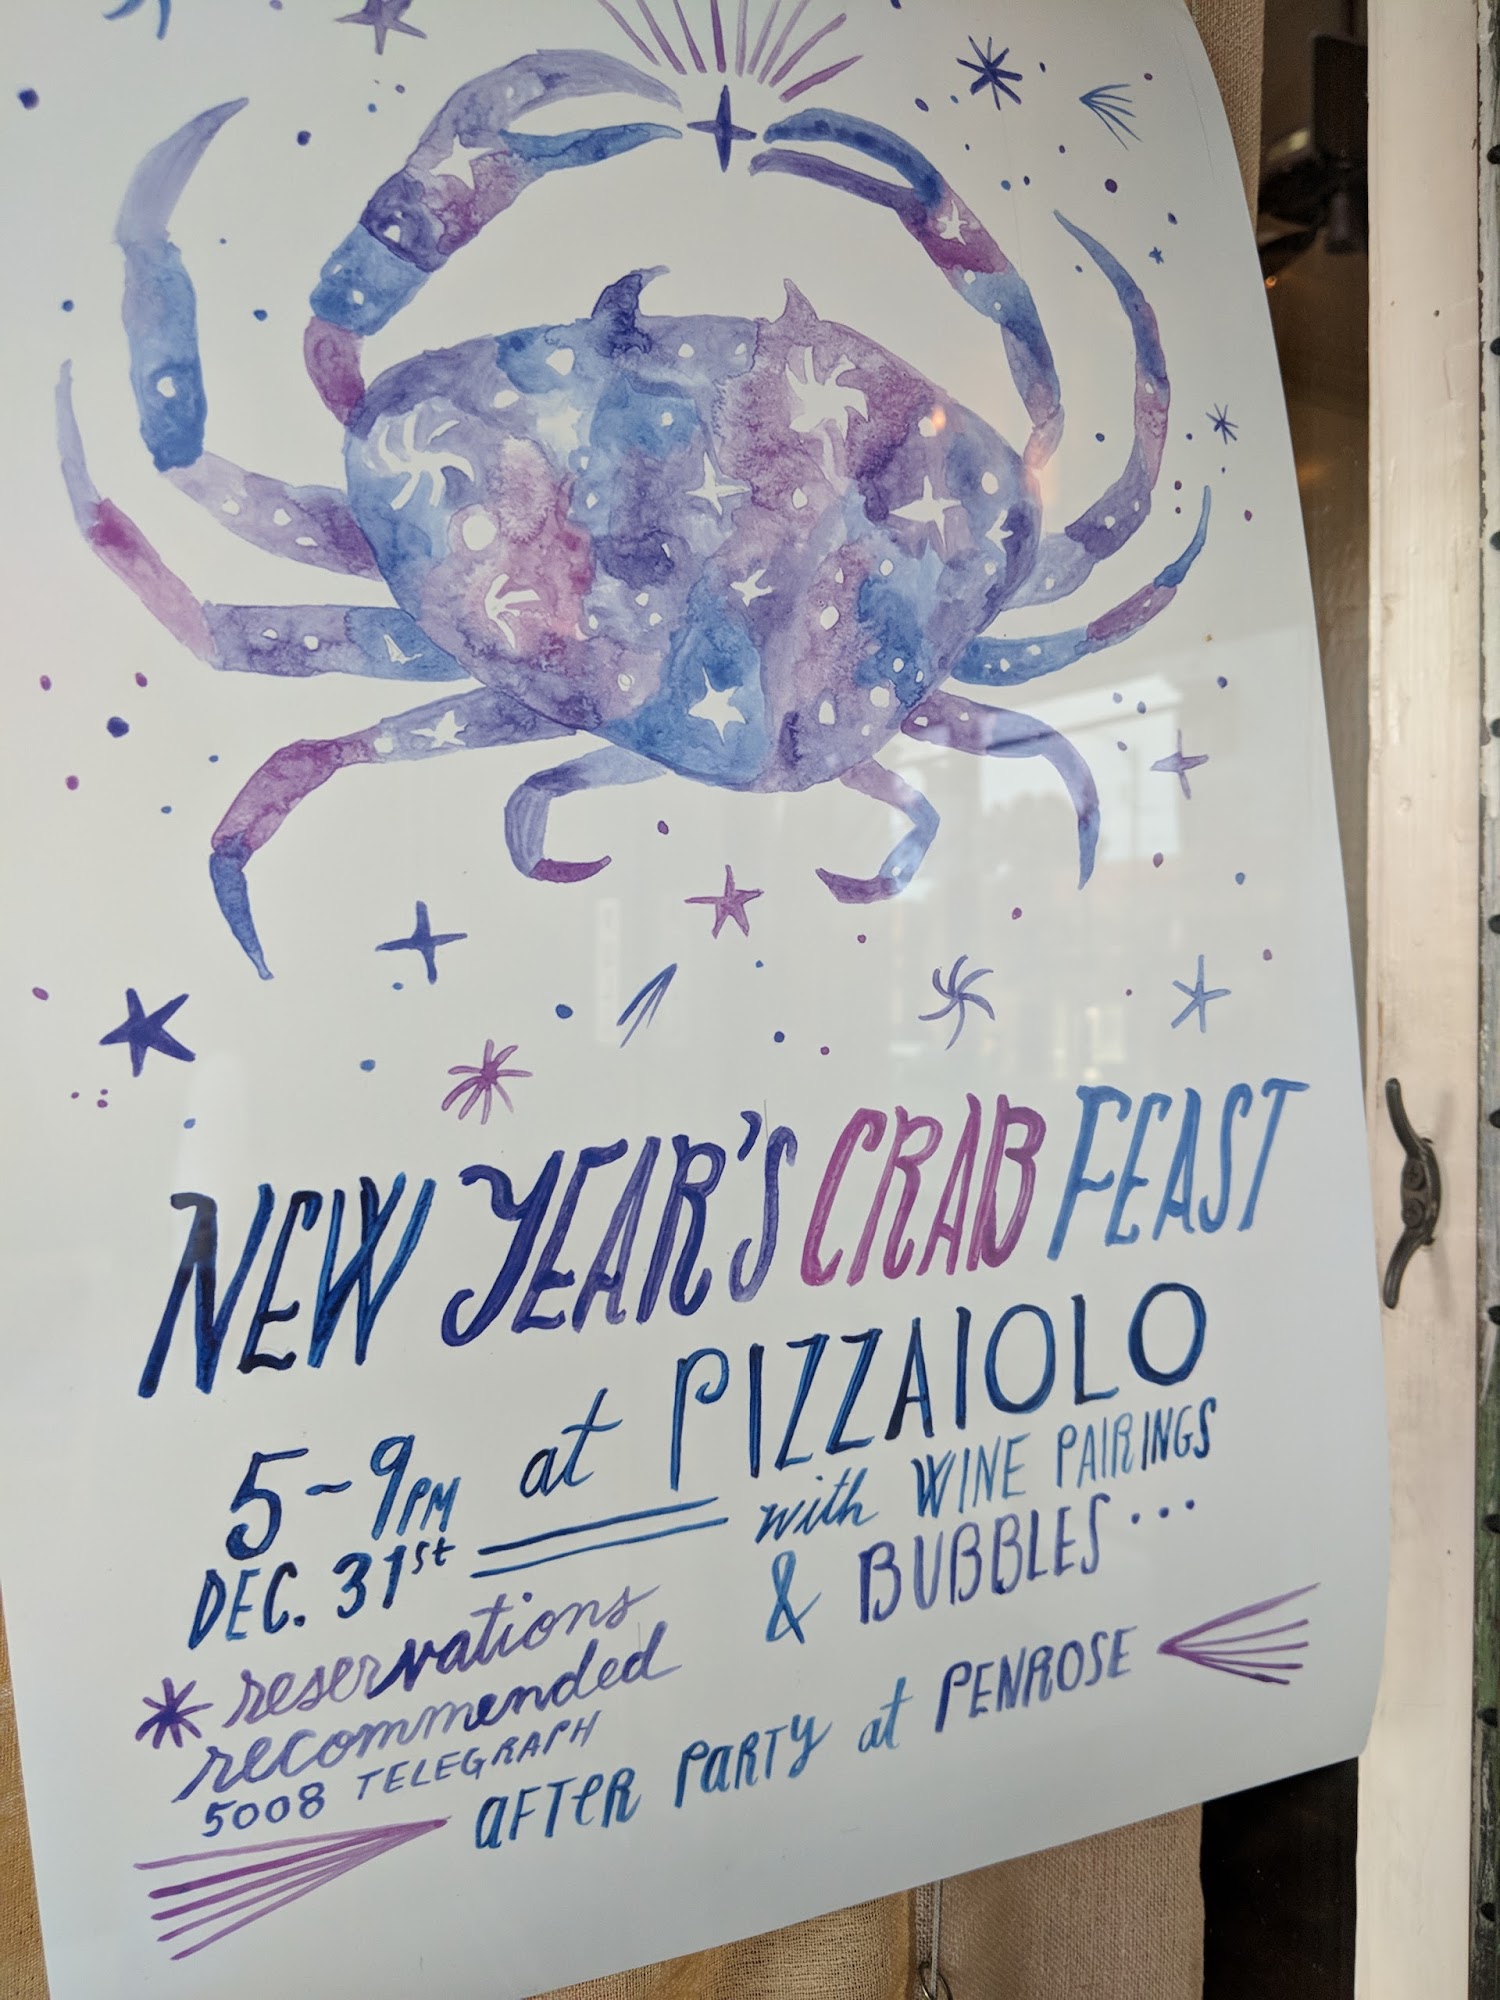 NEW YEAR'S CRAB FEAST
at PIZZAIOLO
5-9PM
DEC. 31st
with WINE PAIRINGS
& BUBBLES...
* reservations
recommended
5008 TELEGRAPH
AFTER PARTY at PENROSE